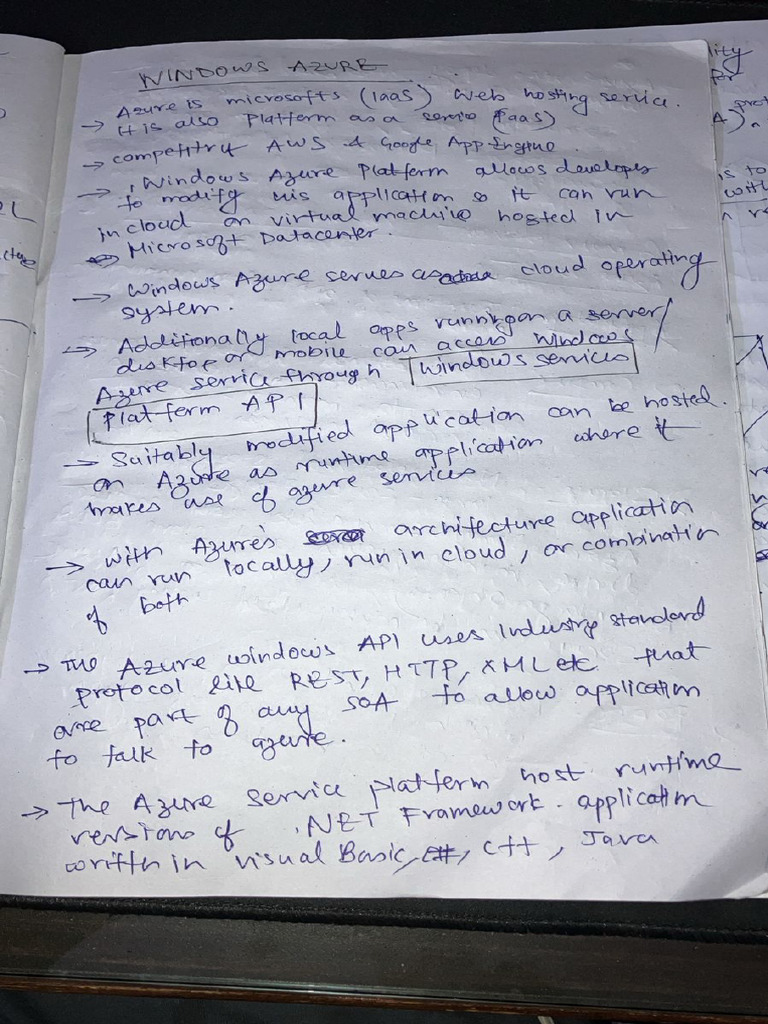 WINDOWS AZURE
→ Azure is microsofts (IaaS) Web hosting service.
It is also Platform as a servic (PaaS)
→ competitry AWS & Google App Engine
→ Windows Azure Platform allows develope
to modify his application so it can run
in cloud on virtual machine hosted in
Microsoft Datacenter.
→ Windows Azure serves as cloud operating
system.
→ Additionally local apps running on a server/
disktop or mobile can access Windows
Azure service through Windows services
Platform API
→ Suitably modified application can be hosted.
on Azure as runtime application where it
makes use of azure services
→ with Azure's architecture application
can run locally, run in cloud, or combination
of both
→ The Azure windows API uses Industry standard
protocol like REST, HTTP, XML etc that
are part of any SOA to allow application
to talk to azure.
→ The Azure Service platform host runtime
versions of .NET Framework. application
written in visual Basic, C++, Java
lity
is to
with